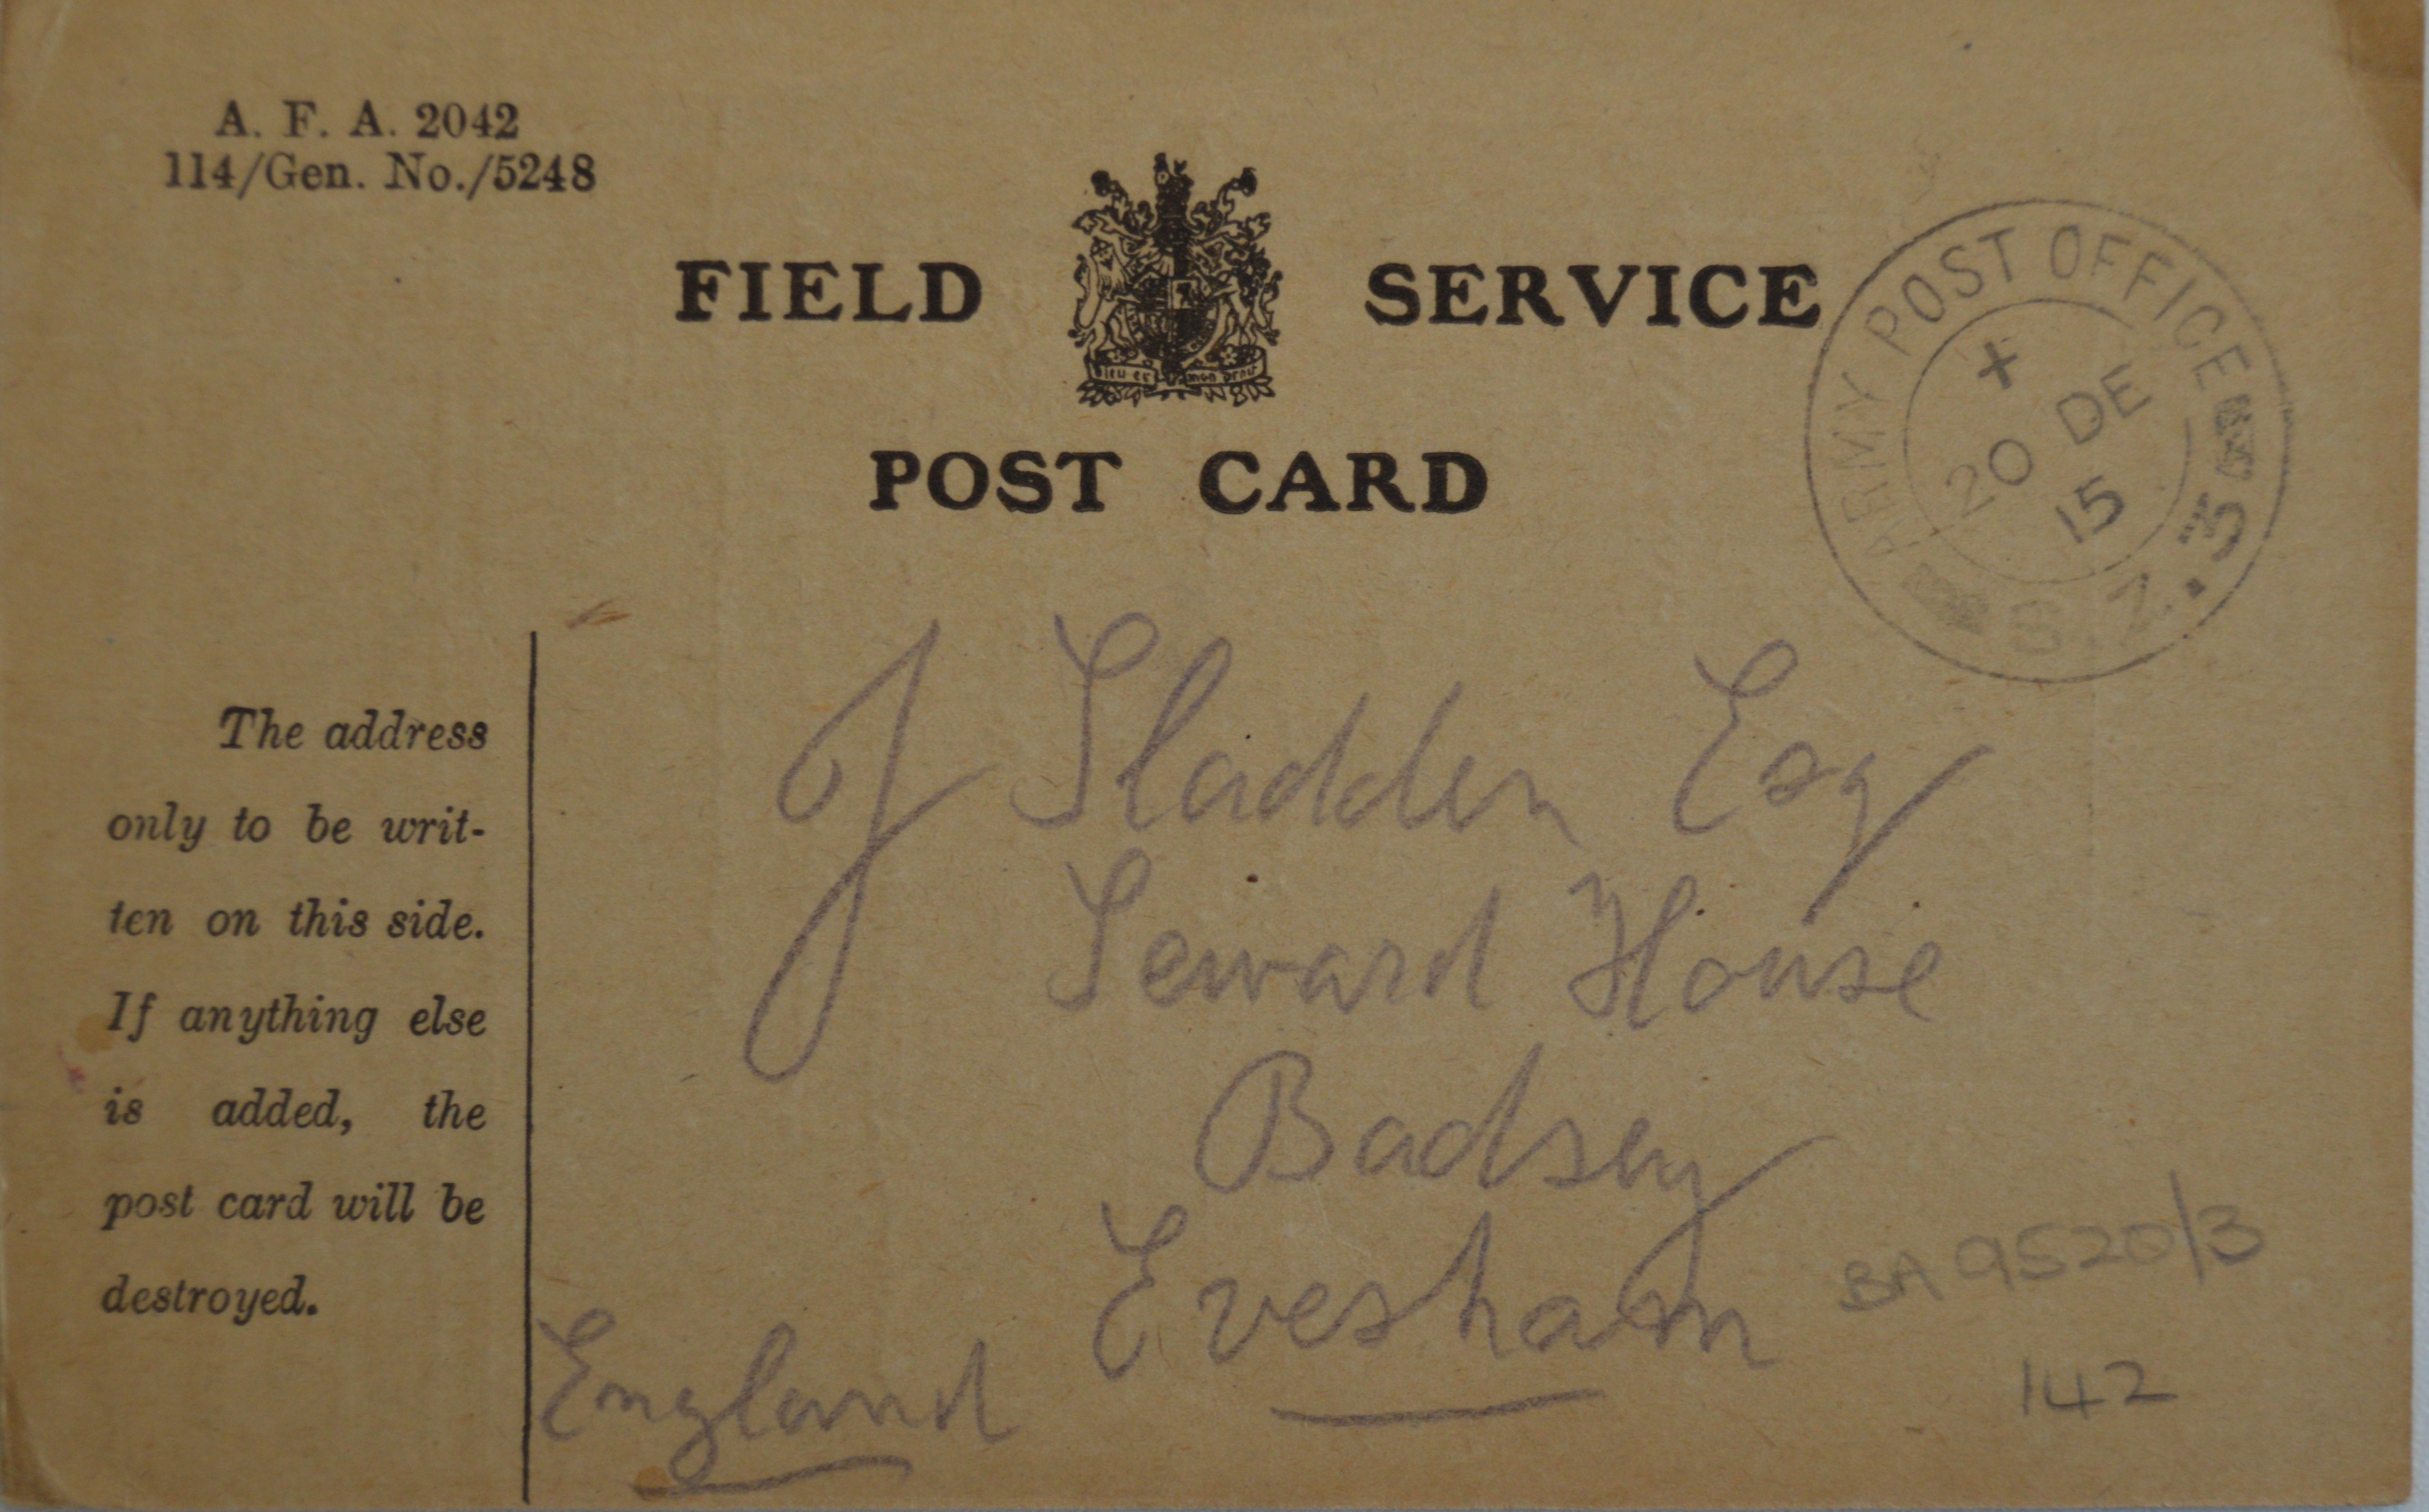 A. F. A. 2042
114/Gen. No./5248
FIELD SERVICE
POST CARD
ARMY POST OFFICE
20 DE
15
S.Z.3
The address
only to be writ-
ten on this side.
If anything else
is added, the
post card will be
destroyed.
J Sladden Esq
Seward House
Badsey
Evesham
England
BA 9520/3
142